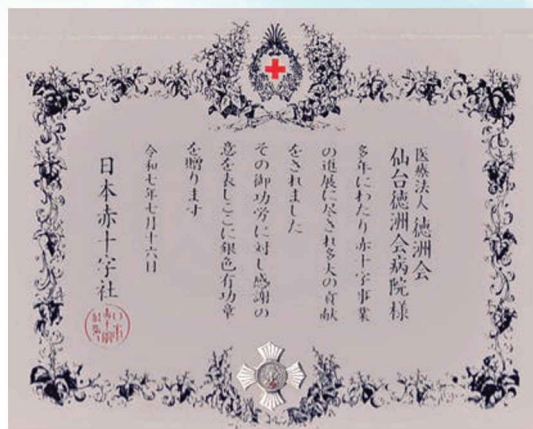 医療法人 徳洲会
仙台徳洲会病院 様
多年にわたり赤十字事業
の進展に尽され多大の貢献
をされました
その御功労に対し感謝の
意を表しここに銀色有功章
を贈ります
令和七年七月十六日
日本赤十字社